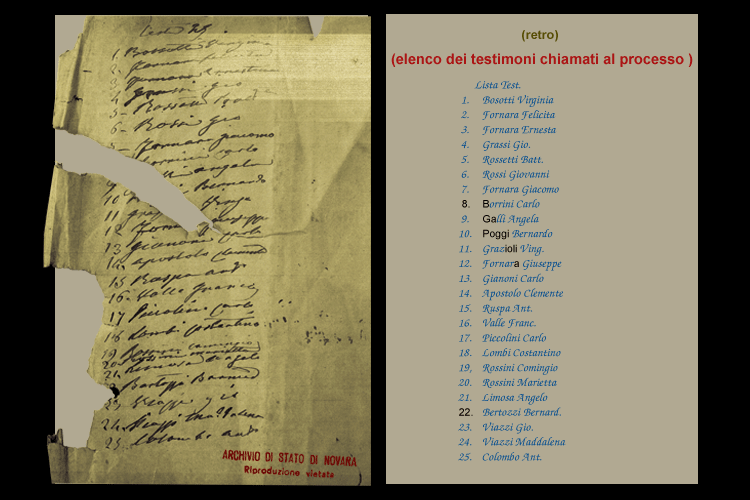 Lista 25.
1. Bossotti Virginia
2. Fornara Felicita
3. Fornara Ernestina
4. Grassi Gio
5 - Rossetti Batta
6 - Rossi Gio
Fornara Giacomo
Carlo
Angela
10 Bernardo
11
12 Giuseppe
13. Gianoni Carlo
14. Apostolo Clemente
15 Raspa Anto
16. Valle Franco
17 Piccolini Carlo
18 Lombi Costantino
19
20
21. Limosa Angelo
Bertozzi
23
24. Maddalena
25. Colombo Anto
ARCHIVIO DI STATO DI NOVARA
Riproduzione vietata
(retro)
(elenco dei testimoni chiamati al processo )
Lista Test.
1. Bosotti Virginia
2. Fornara Felicita
3. Fornara Ernesta
4. Grassi Gio.
5. Rossetti Batt.
6. Rossi Giovanni
7. Fornara Giacomo
8. Borrini Carlo
9. Galli Angela
10. Poggi Bernardo
11. Grazioli Ving.
12. Fornara Giuseppe
13. Gianoni Carlo
14. Apostolo Clemente
15. Ruspa Ant.
16. Valle Franc.
17. Piccolini Carlo
18. Lombi Costantino
19, Rossini Comingio
20. Rossini Marietta
21. Limosa Angelo
22. Bertozzi Bernard.
23. Viazzi Gio.
24. Viazzi Maddalena
25. Colombo Ant.